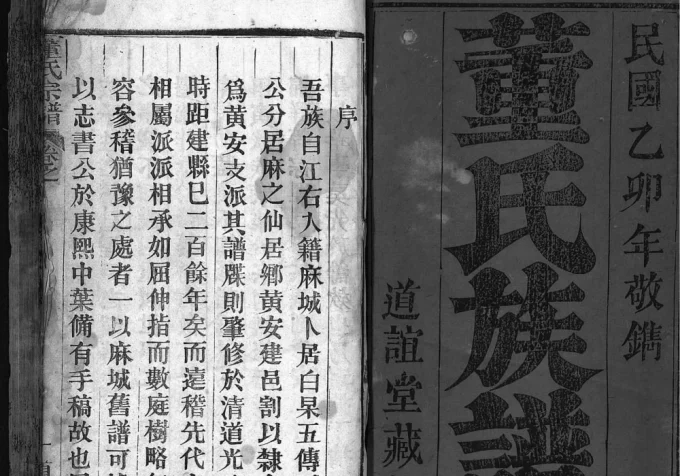 民國乙卯年敬鐫
董氏族譜
道誼堂藏
序
吾族自江右入籍麻城卜居白杲五傳
公分居麻之仙居鄉黃安建邑割以隸
爲黃安支派其譜牒則肇修於清道光
時距建縣巳二百餘年矣而遠稽先代
相屬派派相承如屈伸指而數庭樹略
容參稽猶豫之處者一以麻城舊譜可
以志書公於康熙中葉備有手稿故也
董氏宗譜 卷之